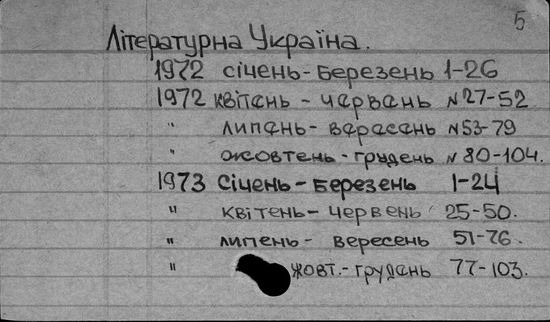 5
Літературна Україна.
1972 січень-березень 1-26
1972 квітень - червень №27-52
" липень - вересень №53-79
" жовтень - грудень № 80-104.
1973 Січень-березень 1-24
" квітень - червень 25-50.
" липень - вересень 51-76.
" жовт.-грудень 77-103.